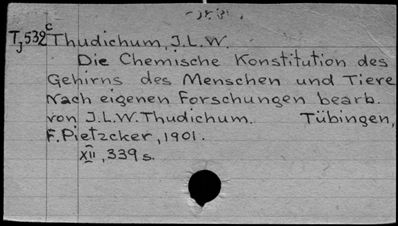 TJ532c Thudichum, J.L.W.
Die Chemische Konstitution des
Gehirns des Menschen und Tiere
Nach eigenen Forschungen bearb.
von J.L.W. Thudichum. Tübingen,
F. Pietzcker, 1901.
XII, 339 s.